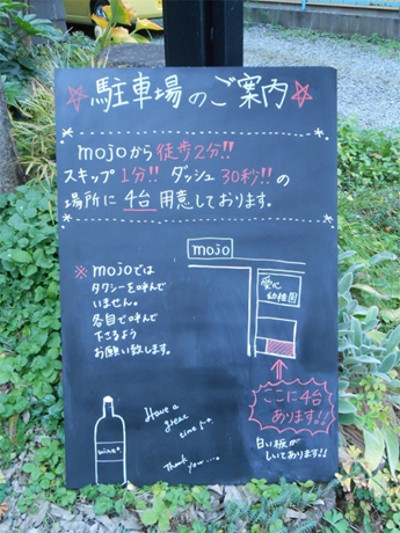 mojo
駐車場のご案内
mojoから徒歩2分!!
スキップ1分!! ダッシュ30秒!!の
場所に 4台 用意しております。
mojo
愛心
幼稚園
※ mojoでは
タクシーを呼んで
いません。
各自で呼んで
下さるよう
お願い致します。
ここに4台
あります!!
白い板が
しいてあります!!
wine
Have a
great
time
Thank
you....